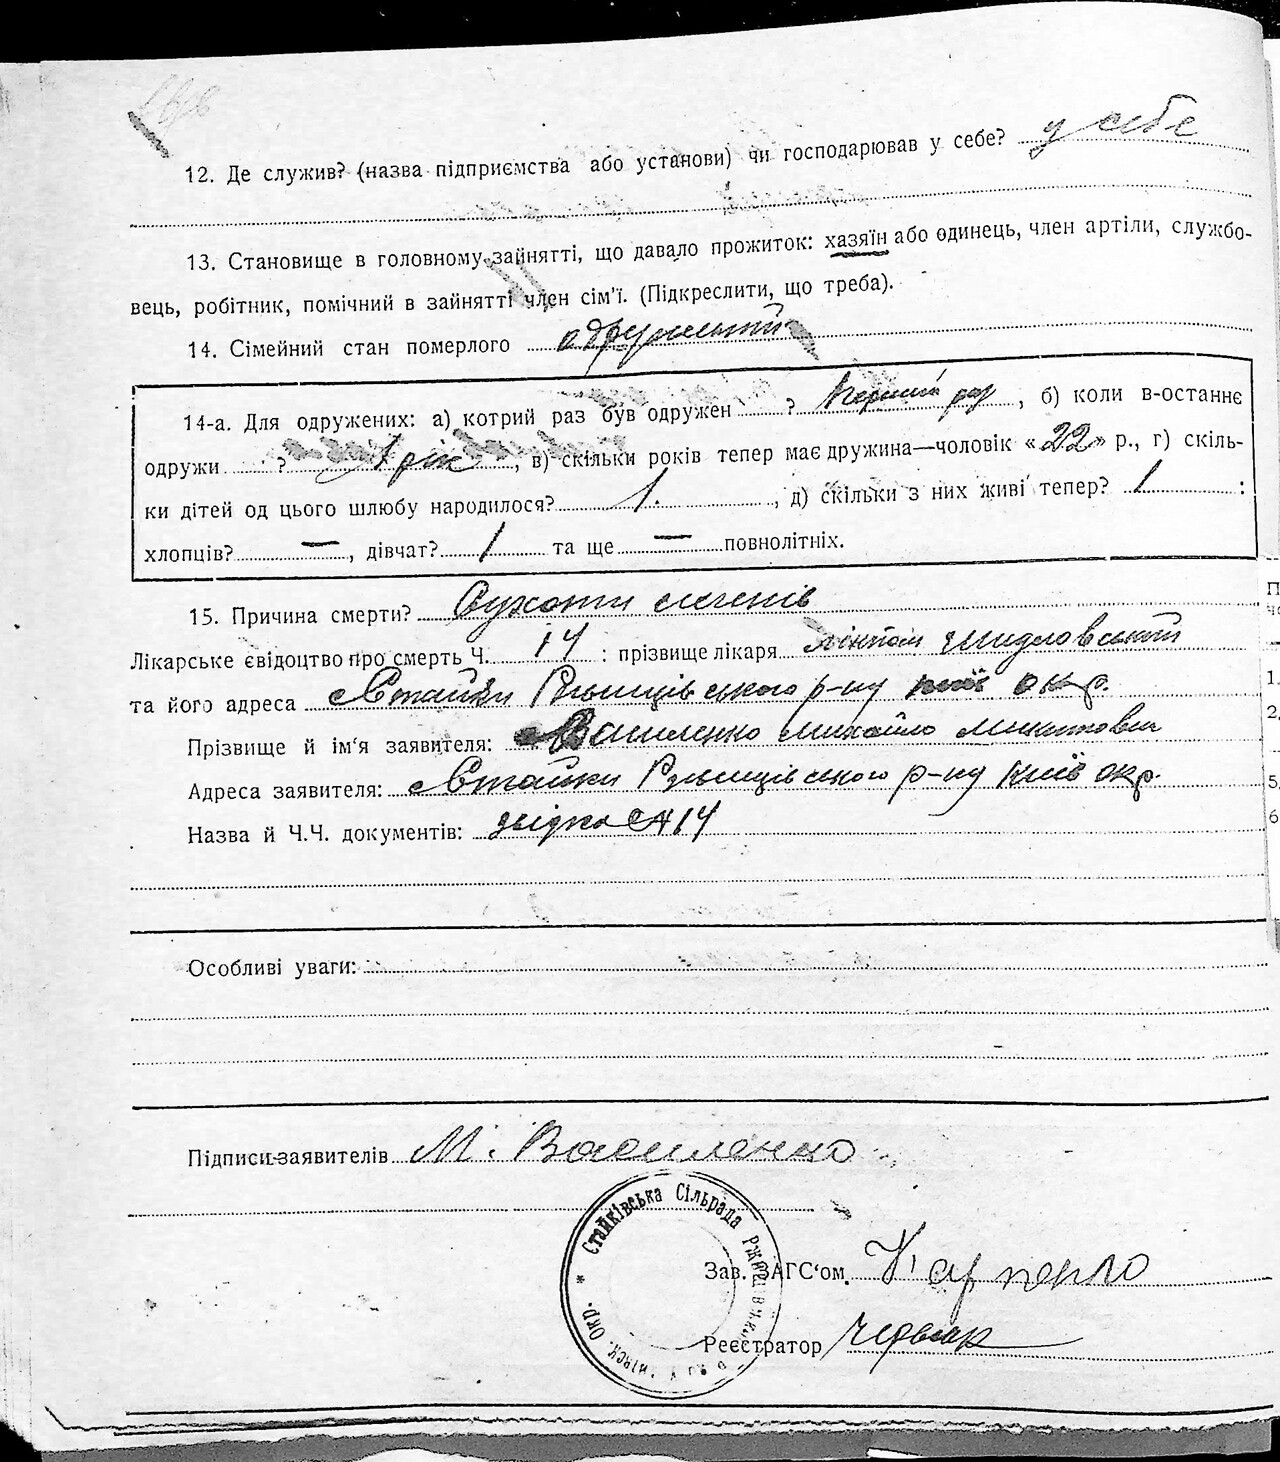 12. Де служив? (назва підприємства або установи) чи господарював у себе? у себе
13. Становище в головному зайнятті, що давало прожиток: хазяїн або одинець, член артіли, службо-
вець, робітник, помічний в зайнятті член сім'ї. (Підкреслити, що треба).
14. Сімейний стан померлого одружений
14-а. Для одружених: а) котрий раз був одружен ? Перший раз, б) коли в-останнє
одружи ? 1 рік, в) скільки років тепер має дружина—чоловік «22» р., г) скіль-
ки дітей од цього шлюбу народилося? 1. , д) скільки з них живі тепер? 1 :
хлопців? —, дівчат? 1 та ще — повнолітніх.
15. Причина смерти? Сухоти легенів
Лікарське євідоцтво про смерть Ч. 14 : прізвище лікаря Шидловський
та його адреса с Стайки Ржищівського р-ну київ окр.
Прізвище й ім'я заявителя: Василенко Михайло Микитович
Адреса заявителя: с Стайки Ржищівського р-ну Київ окр.
Назва й Ч.Ч. документів: 14
Особливі уваги:
Підписи заявителів М. Василенко
* Стайківська Сільрада
Окр.
Зав. ЗАГС'ом.
Реєстратор